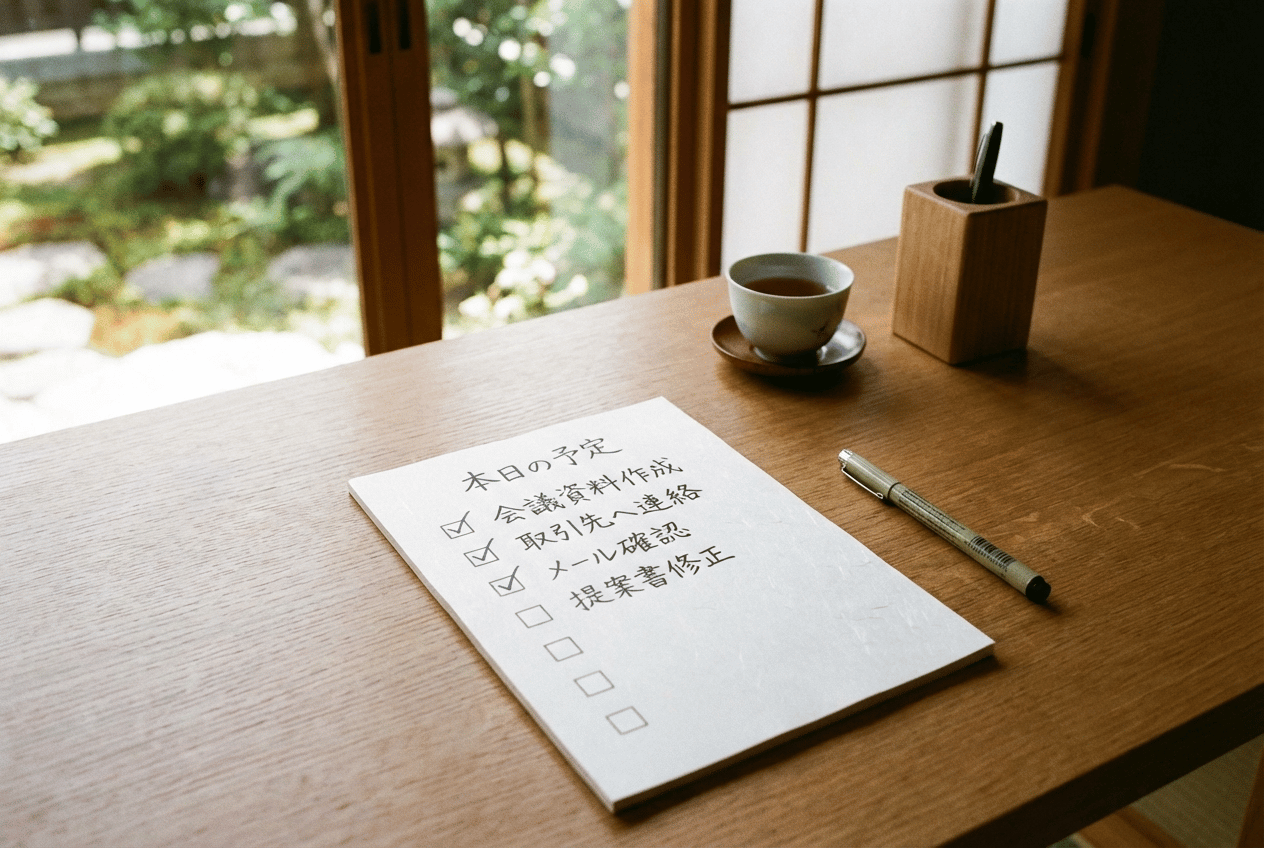 本日の予定
会議資料作成
取引先へ連絡
メール確認
提案書修正